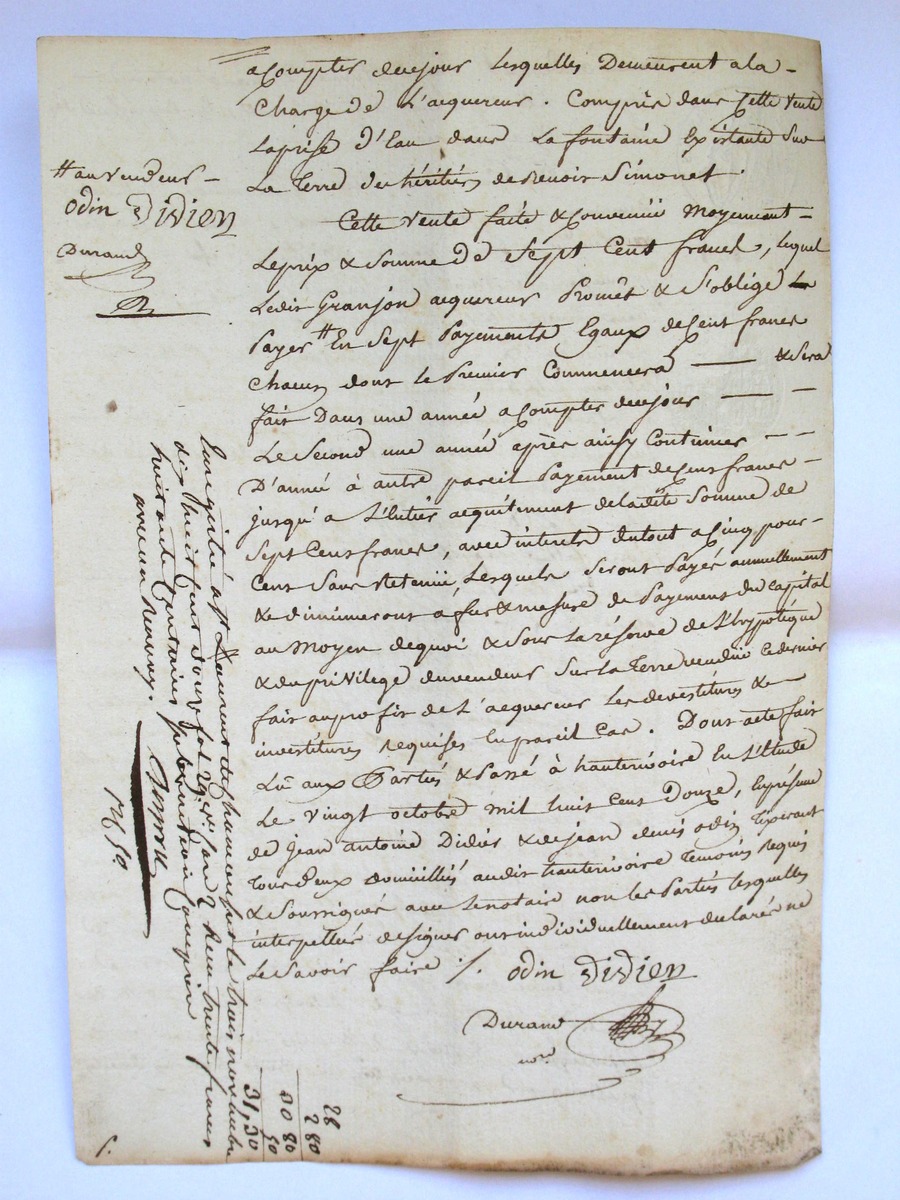 a Compter de ce jour Lesquelles Demeurent a la -
Charge de L'acquereur. Compris dans Cette Vente
La prise d'Eau dans La fontaine Existante Sur
La Terre des héritiers de Benoit Simonet.
Cette Vente faite & Convenüe Moyennant -
Le prix & Somme de Sept Cent francs, lequel
Ledit Granjon acquereur Promêt & S'oblige de
Payer # En Sept Payements Egaux de Cent francs
Chacun dont le Premier Commencera — & Sera
fait Dans une année a Compter de ce jour — —
Le Second une année après ainsy Continuer - -
D'année à autre pareil Payement de Cent francs -
jusqu'a L'Entier acquitement de la dite Somme de
Sept Cens francs, avec interets du tout a Cinq pour -
Cent Sans Retenüe, Lesquels Seront Payés annuellement
& diminueront a fur & mesure de Payement du Capital
au Moyen de quoi & Sous La réserve de L'hypotéque
& du priVilege du vendeur Sur La Terre vendüe Ce dernier
fait au profit de L'acquereur Les devestitures & -
investitures Requises En pareil Cas. Dont acte fait
Lû aux Parties & Passé à hauterivoire En L'Etude
Le Vingt octobre Mil huit Cent Douze, En présence
de Jean antoine Didier & de jean denis odin Tixerant
Tous deux domiciliés au dit hauterivoire Temoins Requis
& Soussignés avec Le notaire non les Parties lesquelles
interpellées de Signer ont individuellement declarés ne
Le Savoir faire ./.
odin DiDien
Durand
nore
# au Vendeur -
odin DiDien
Durand
Enregistré à St Laurent de Chamousset le trois novembre
dix huit cent douze fol 29 Reçu trente francs
quatre vingt
avec un Renvoy.
28
2 80
30 80
50
31,30